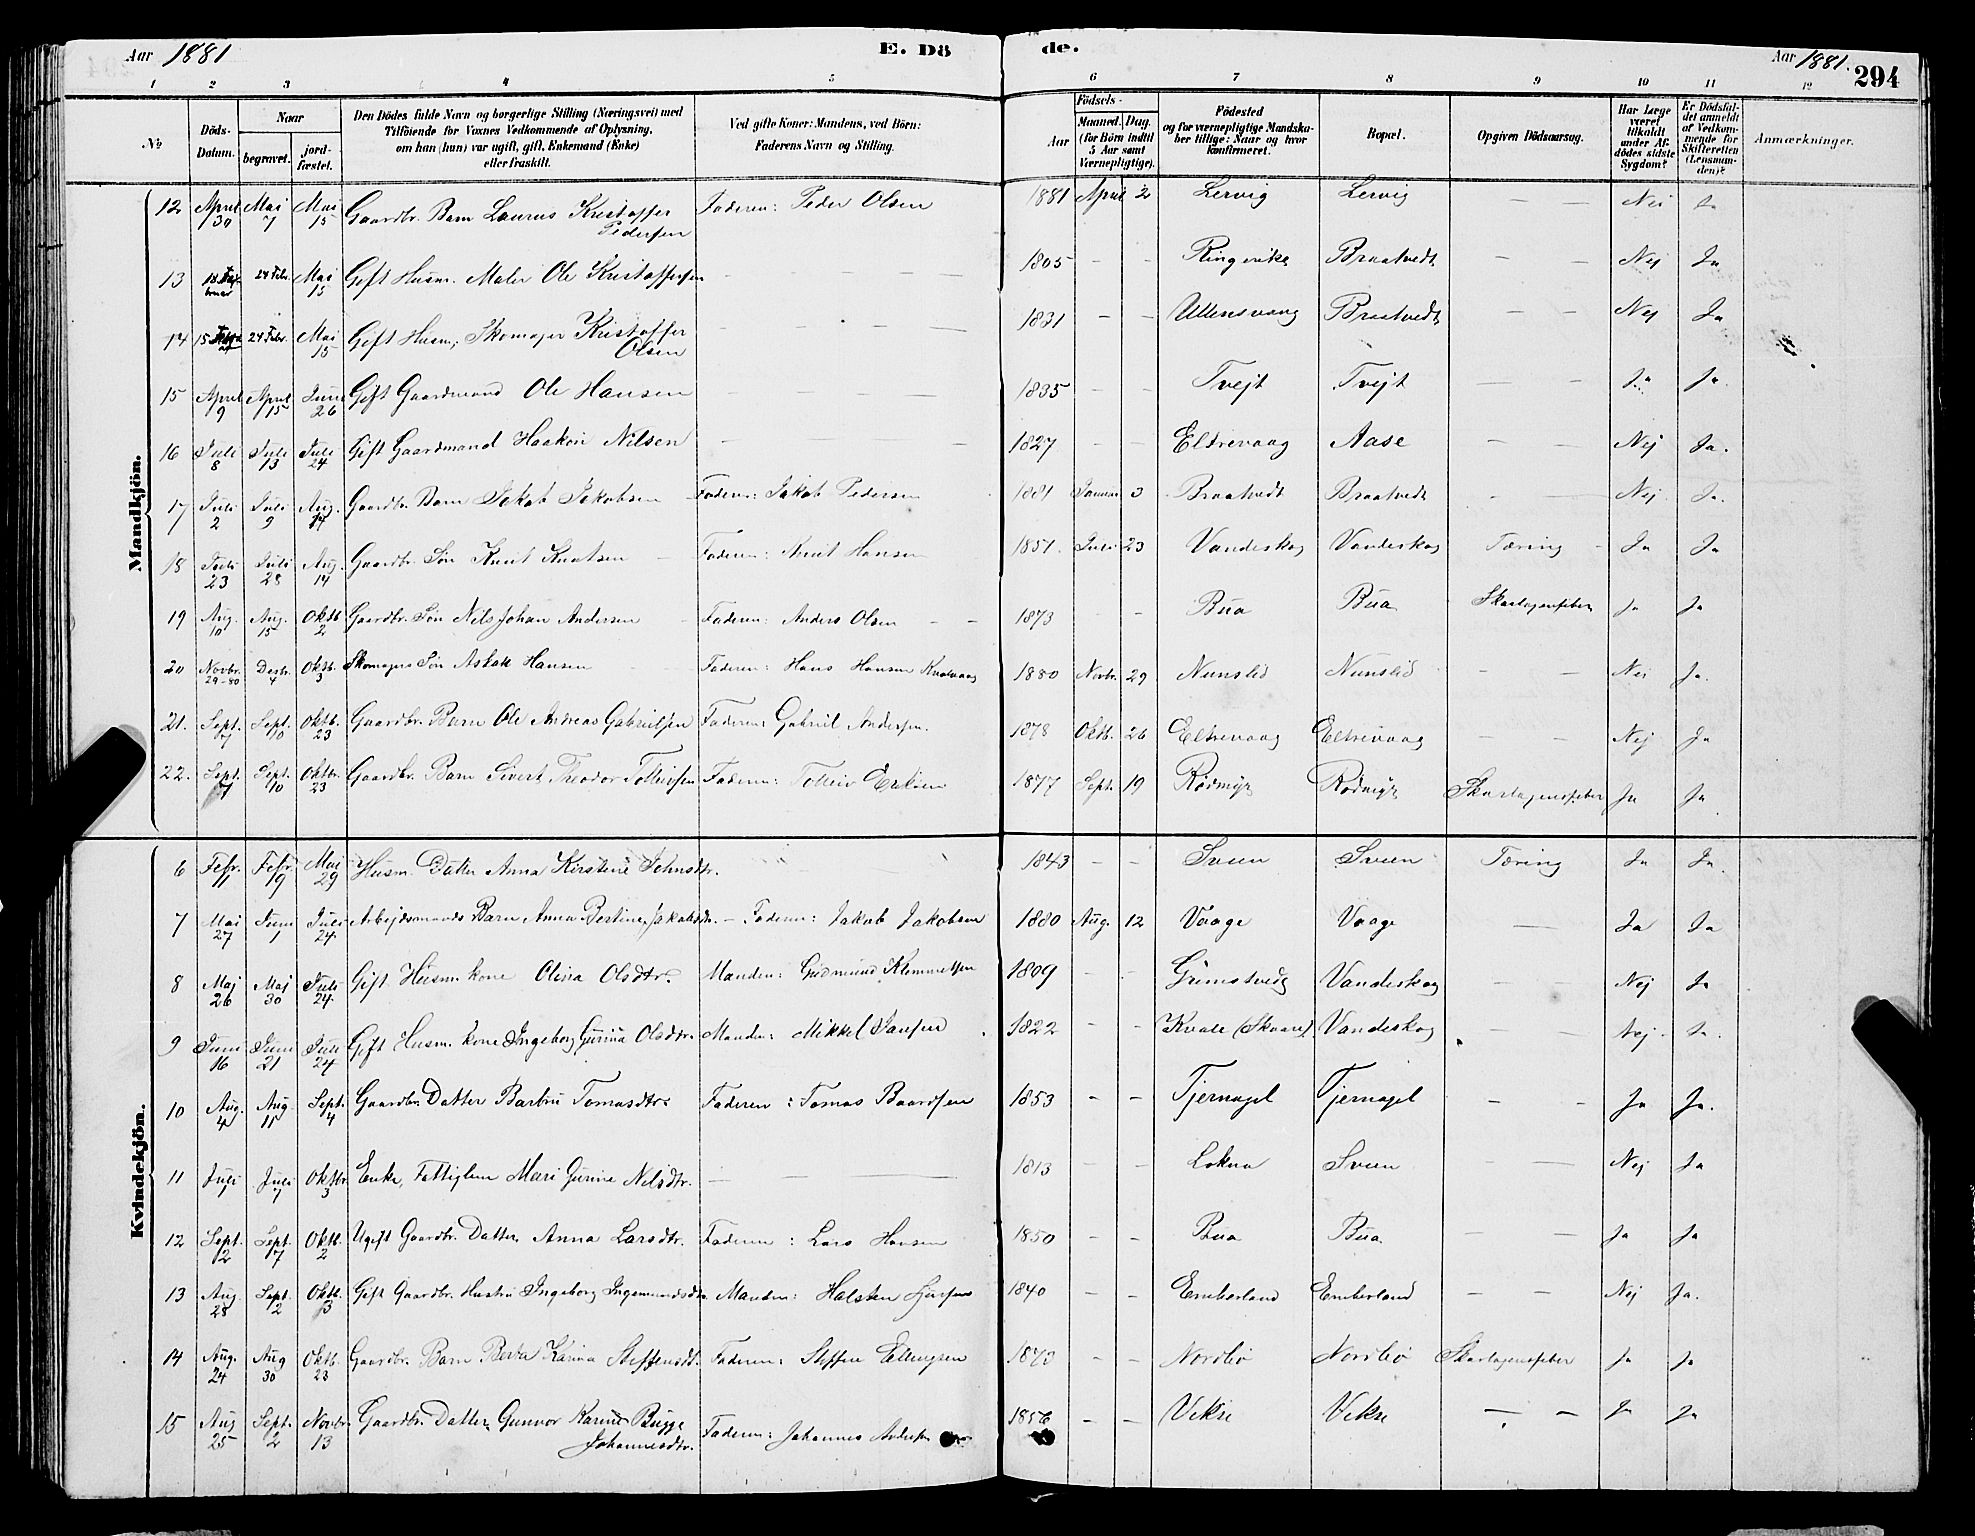 Aar 1881 E. Döde. Aar 1881. 294
1 2 3 4 5 6 7 8 9 10 11 12
№ Döds-Datum. Naar begravet. jord-fæstet. Den Dödes fulde Navn og borgerlige Stilling (Næringsvei) med Tilföiende for Voxnes Vedkommende af Oplysning, om han (hun) var ugift, gift, Enkemand (Enke) eller fraskilt. Ved gifte Koner: Mandens, ved Börn: Faderens Navn og Stilling. Födsels- Aar Maaned. Dag. (for Börn indtil 5 Aar samt Værnepligtige). Födested og for værnepligtige Mandskaber tillige: Naar og hvor konfirmeret. Bopæl. Opgiven Dödsaarsag. Har Læge været tilkaldt under Afdödes sidste Sygdom? Er Dödsfaldet anmeldt af Vedkommende for Skifteretten (Lensmanden)? Anmærkninger.
Mandkjön.
12 April 30 Mai 7 Mai 15 Gaardbr. Barn Laurus Kristoffer Pedersen Faderen: Peder Olsen 1881 April 2 Lervig Lervig — — Nei Ja
13 18 Februar 24 Febr. Mai 15 Gift Husm. Maler Ole Kristoffersen — — — — 1805 — — Ringevike Braatvedt — — Nej Ja
14 15 24 Febr. Mai 15 Gift Husm, Skomager Kristoffer Olsen — — — — 1831 — — Ullensvang Braatvedt — — Nej Ja
15 April 9 April 15 Juni 26 Gift Gaardmand Ole Hansen — — — 1835 — — Tvejt Tvejt — — Ja Ja.
16 Juli 8 Juli 13 Juli 24 Gift Gaardmand Haakon Nilsen — — — 1827 — — Eltrevaag Aase — — Nej Ja.
17 Juli 2 Juli 9 Aug. 14 Gaardbr. Barn Jakob Jakobsen Faderen: Jakob Pedersen 1881 Januar 3 Braatvedt Braatvedt — — Nej Ja.
18 Juli 23 Juli 28 Aug. 14 Gaardbr. Søn Knut Knutsen — Faderen: Knut Hansen 1851. Juli 23 Vandeskog Vandeskog Tæring — Ja Ja
19 Aug. 10 Aug. 15 Oktb 2 Gaardbr. Søn Nils Johan Andersen — Faderen: Anders Olsen — — 1873 — — Bua Bua Skarlagensfeber Ja Ja
20 Novbr. 29-80 Desbr. 4 Oktb. 3 Skomagers Søn Hansen — Faderen: Hans Hansen 1880 Novbr. 29 Nunslid Nunslid — — Nei Ja.
21. Sept. 7 Sept. 10 Oktb. 23 Gaardbr. Barn Ole Andreas Gabrielsen Faderen: Gabriel Andersen. 1878 Oktb. 26 Eltrevaag Eltrevaag — — Nej Ja
22. Sept. 7 Sept. 10 Oktbr. 23 Gaardbr. Barn Sivert Theodor Tolleivsen Faderen: Tolleiv Eriksen 1877 Sept. 19 Rødmyr Rødmyr Skarlagensfeber Ja Ja
Kvindekjön.
6 Febr. 11 Febr. 19 Maj 29 Husm. Datter Anna Kirstine Johnsdtr. 1843 — — Sveen Sveen Tæring Ja Ja.
7 Mai 27 Juni 1 Juli 24. Arbejdsmands Barn Anna Bertine Jakobsdtr. — Faderen: Jakob Jakobsen 1880 Aug. 12 Vaage Vaage — Ja Ja
8 Maj 26 Maj 30 Juli 24. Gift Husm. kone Olina Olsdtr. Manden: Gudmund Klemmetsen 1809 — — Grimstvedt Vandeskog — — Nej Ja
9 Juni 16 Juni 21 Juli 24 Gift Husm. kone Ingeborg Gurina Olsdtr. Manden: Mikkel Jansen 1822 — — Kvale (Skaare) Vandeskog — — Nej Ja.
10 Aug. 4 Aug 11 Sept. 4 Gaardbr. Datter Barbru Tomasdtr. Faderen: Tomas Baardsen 1853 — — Tjernagel Tjernagel — — Ja Ja.
11 Juli 1 Juli 7 Oktbr. 3 Enke, Fattiglem Mari Gurine Nilsdtr. — — — 1813 — — Lokna Sveen — — Nej Ja
12 Sept. 2 Sept. 7 Oktb. 2 Ugift Gaardbr. Datter Anna Larsdtr. Faderen: Lars Hansen 1850 — — Bua Bua — — Ja Ja
13 Aug. 28 Sept. 2 Oktb. 3 Gift Gaardbr. Hustru Ingeborg Ingemundsdtr. Manden: Halsten 1840 — — Emberland Emberland — — Nej Ja.
14 Aug. 24 Aug 30 Oktb. 23 Gaardbr. Barn Berta Karina Steffensdt. Faderen: Steffen Ellingsen 1873 — — Nordbø Nordbø Skarlagensfeber Ja Ja
15 Aug 25 Sept. 2 Novbr. 13 Gaardbr. Datter Gunvor Karine Bugge Johannesdtr. Faderen: Johannes 1856 — — Vikse Vikse — — Ja Ja